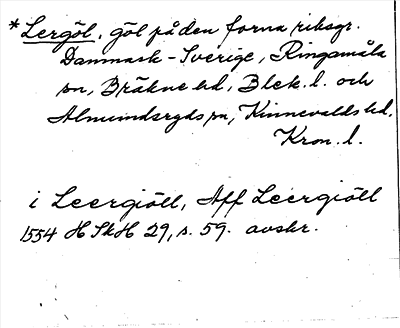 *Lergöl, göl på den forna riksgr.
Danmark-Sverige, Ringamåla
sn, Bräkne hd, Blek. l. och
Almundsryds sn, Kinnevalds hd,
Kron. l.
i Leergiöll, Aff Leergiöll
1554 HSkH 29, s. 59. avskr.